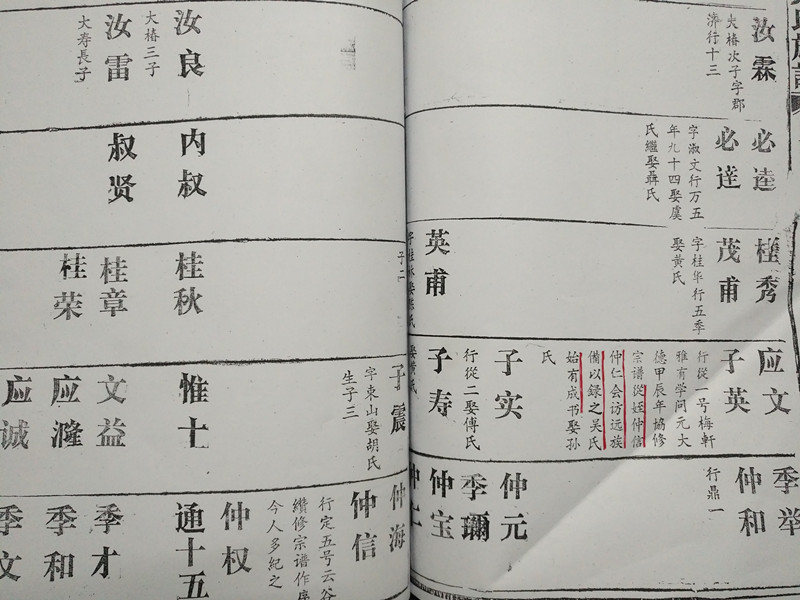 汝霖
夫椿次子字郡
济行十三
必逵
必達
字淑文行万五
年九十四娶虞
氏繼娶聶氏
桂秀
茂甫
字桂华行五季
娶黄氏
英甫
应文
子英
行從一号梅軒
雅有学问元大
德甲辰年協修
宗谱從姪仲信
仲仁会访远族
備以録之吴氏
始有成书娶孙
氏
子实
行從二娶傅氏
子寿
娶黄氏
季举
仲和
行鼎一
仲元
季瓓
仲宝
仲仁
汝良
大椿三子
汝雷
大寿長子
内叔
叔贤
子二
桂秋
桂章
桂荣
子震
字東山娶胡氏
生子三
惟士
文益
应隆
应诚
仲海
仲信
行定五号云谷
纘修宗谱作序
今人多紀之
仲权
通十五
季才
季和
季文